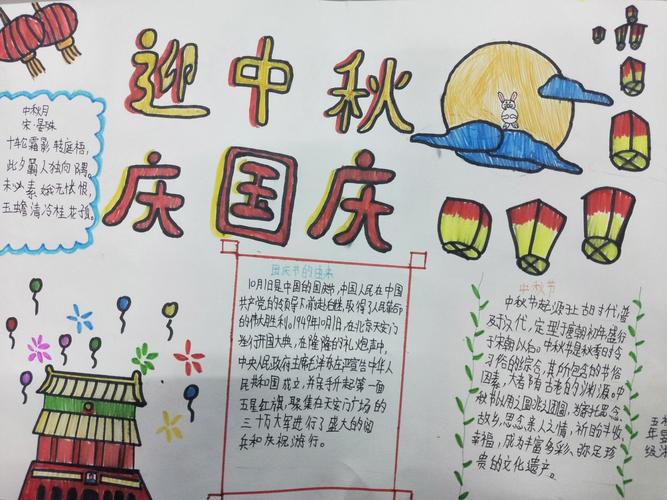 迎中秋
庆国庆
中秋月
宋·晏殊
十轮霜影转庭梧，
此夕羁人独向隅。
未必素娥无怅恨，
玉蟾清冷桂花孤。
国庆节的由来
10月1日是中国的国庆节，中国人民在中国
共产党的领导下，前赴后继，取得了人民革命
的伟大胜利。1949年10月1日，在北京天安门
举行开国大典，在隆隆的礼炮声中，
中央人民政府主席毛泽东庄严宣告中华人
民共和国成立，并亲手升起第一面
五星红旗，聚集在天安门广场的
三十万大军进行了盛大的阅
兵和庆祝游行。
中秋节
中秋节起源于上古时代，普
及于汉代，定型于唐朝初年，盛行
于宋朝以后。中秋节是秋季时令
习俗的综合，其所包含的节俗
因素，大都有古老的渊源。中
秋节以月之圆兆人之团圆，为寄托思念
故乡，思念亲人之情，祈盼丰收、
幸福，成为丰富多彩、弥足珍
贵的文化遗产。
五
年
级